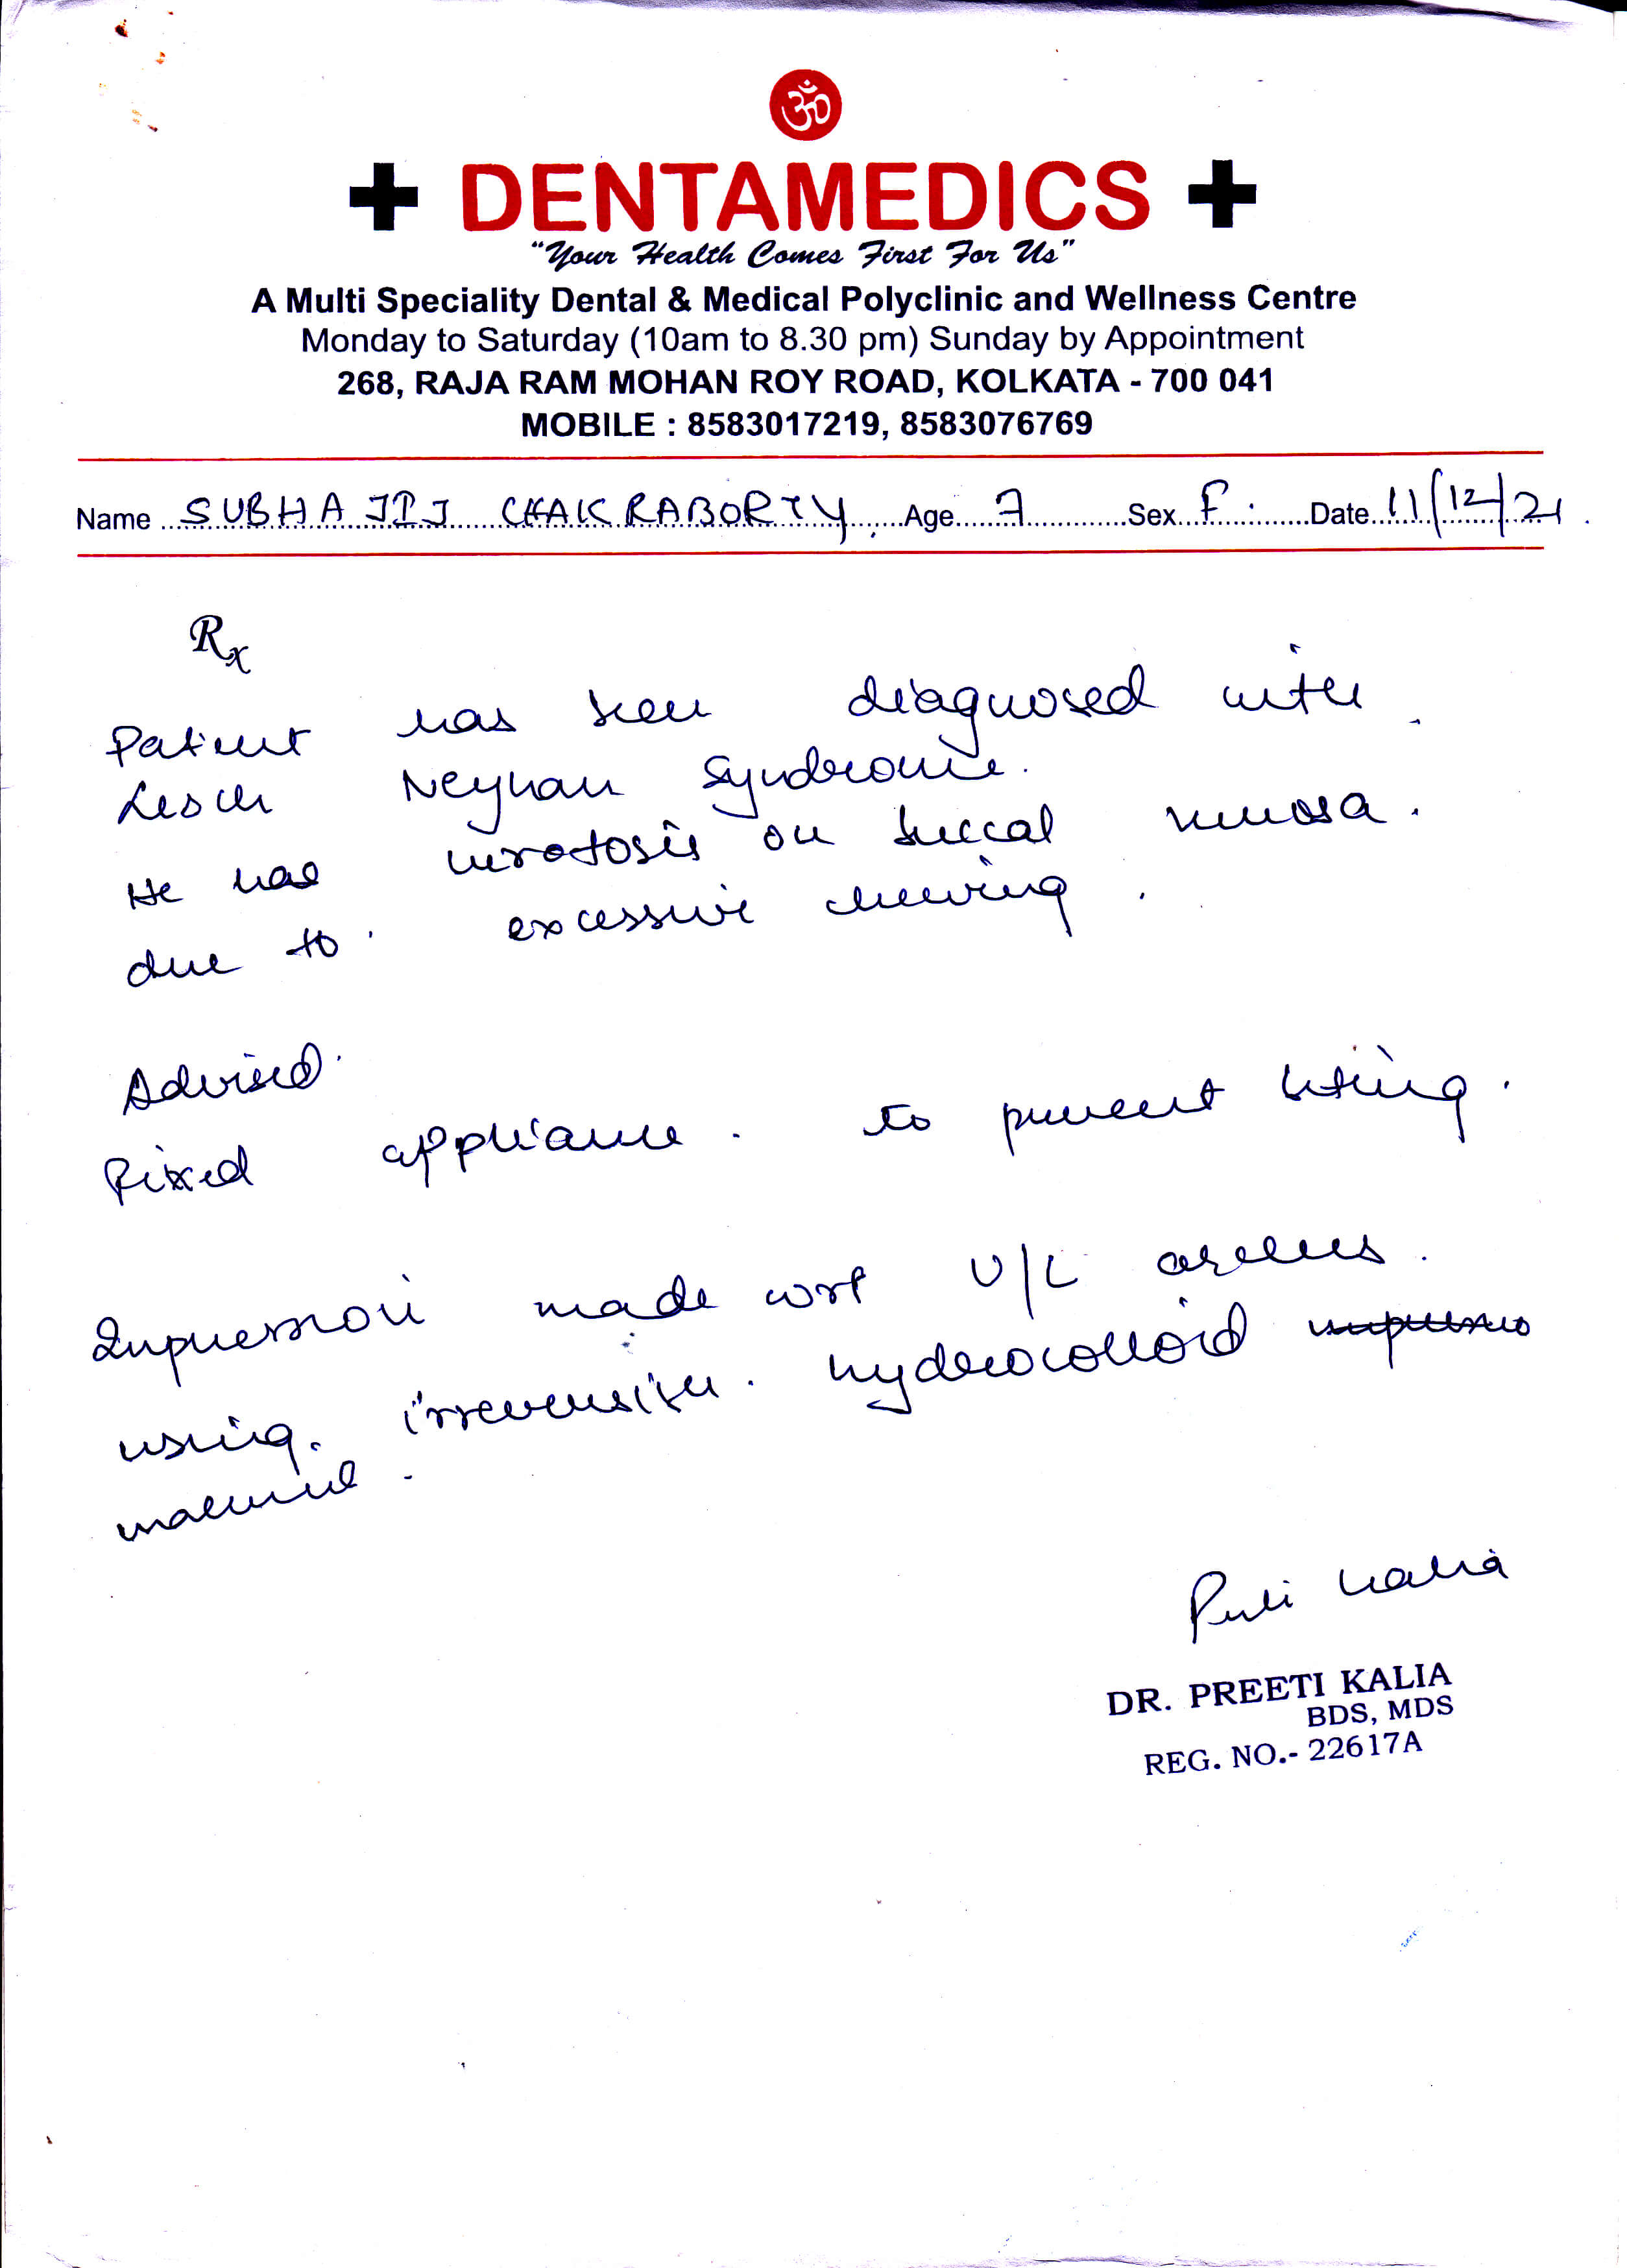 ॐ
+ DENTAMEDICS +
"Your Health Comes First For Us"
A Multi Speciality Dental & Medical Polyclinic and Wellness Centre
Monday to Saturday (10am to 8.30 pm) Sunday by Appointment
268, RAJA RAM MOHAN ROY ROAD, KOLKATA - 700 041
MOBILE : 8583017219, 8583076769
Name SUBHAJIJ CHAKRABORTY. Age 7 Sex F. Date 11/12/21.
Rx
Patient has been diagnosed with
Lesch Neyhan Syndrome.
He has keratosis on buccal mucosa.
due to excessive chewing.
Advised
Fixed appliance. to prevent biting.
Impression made wrt U/L arches.
using. irreversible. hydrocolloid
material.
Preeti Kalia
DR. PREETI KALIA
BDS, MDS
REG. NO.- 22617A